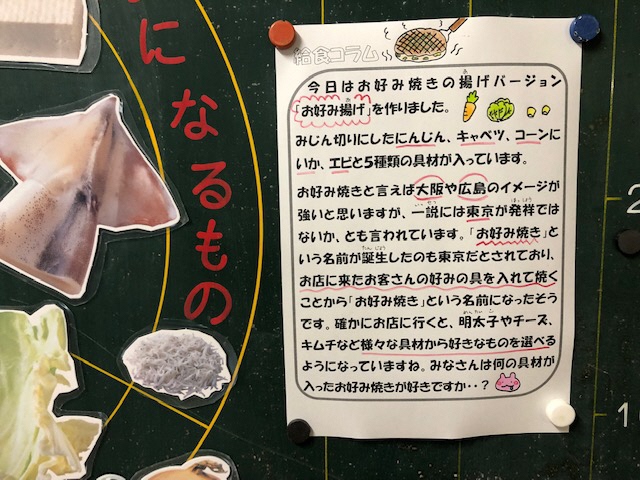 になるもの
給食コラム
今日はお好み焼きの揚げバージョン
「お好み揚げ」を作りました。
みじん切りにしたにんじん、キャベツ、コーンに
いか、エビと5種類の具材が入っています。
お好み焼きと言えば大阪や広島のイメージが
強いと思いますが、一説には東京が発祥では
ないか、とも言われています。「お好み焼き」と
いう名前が誕生したのも東京だとされており、
お店に来たお客さんの好みの具を入れて焼く
ことから「お好み焼き」という名前になったそう
です。確かにお店に行くと、明太子やチーズ、
キムチなど様々な具材から好きなものを選べる
ようになっていますね。みなさんは何の具材が
入ったお好み焼きが好きですか・・?
2
1